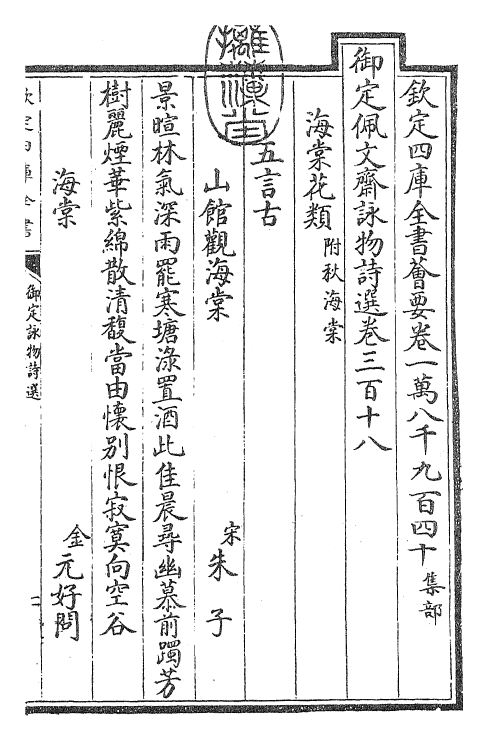 欽定四庫全書薈要卷一萬八千九百四十 集部
御定佩文齋詠物詩選卷三百十八
海棠花類 附秋海棠
五言古
山館觀海棠 宋 朱子
景暄林氣深雨罷寒塘淥置酒此佳晨尋幽慕前躅芳
樹麗煙華紫綿散清馥當由懷别恨寂寞向空谷
海棠 金 元好問
欽定四庫全書
御定詠物詩選
一
摛藻堂